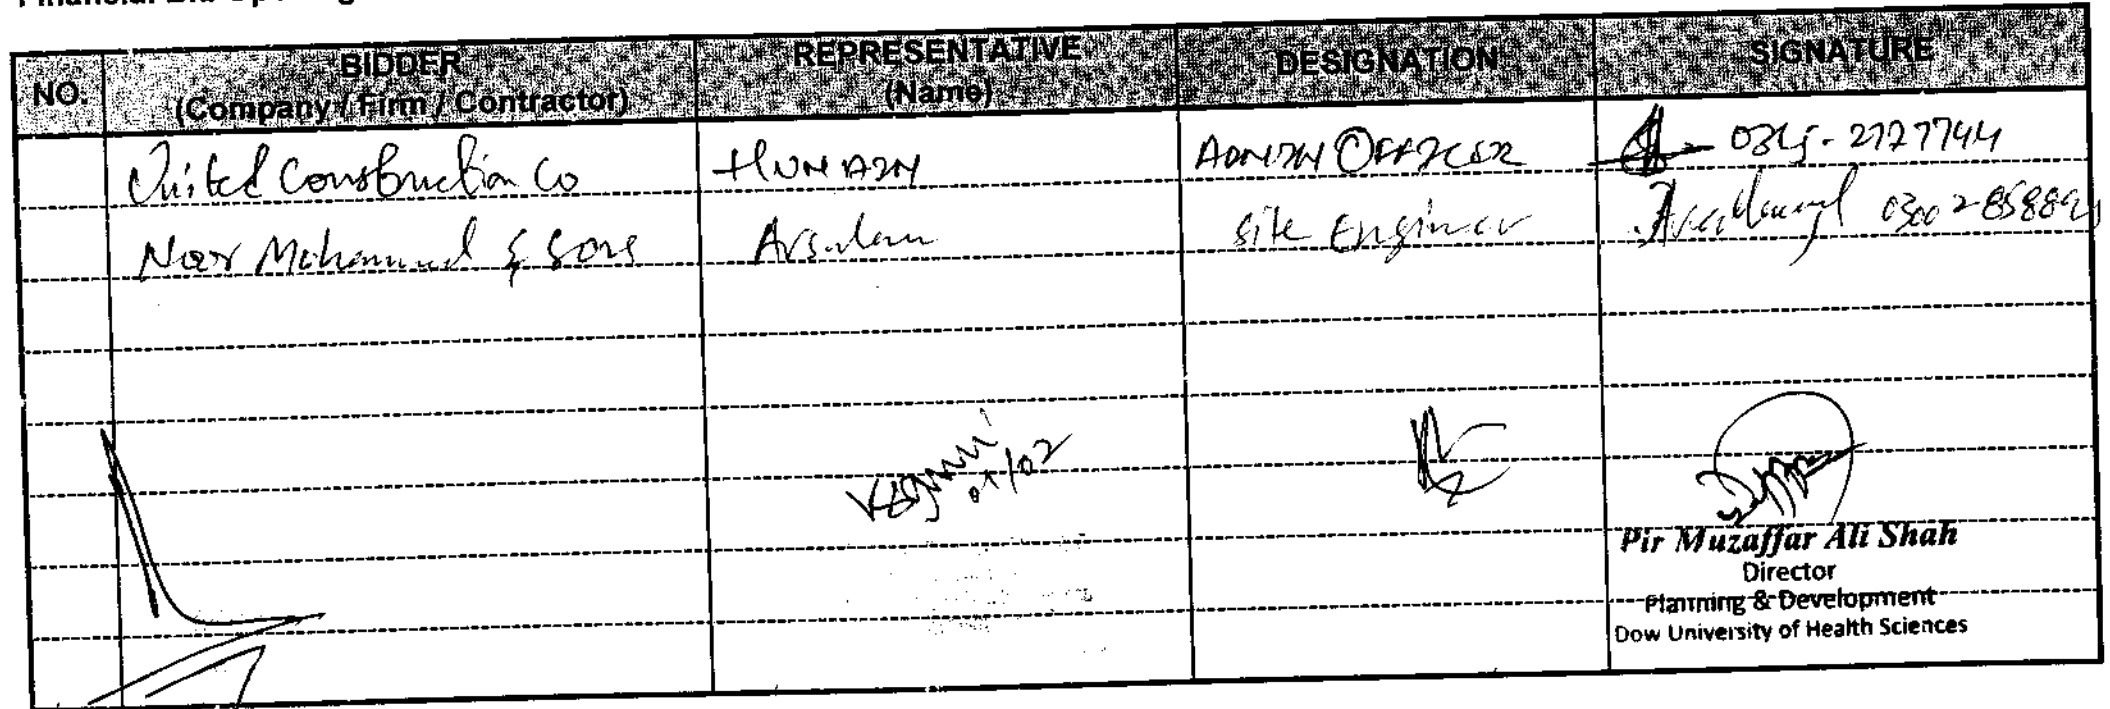 NO. BIDDER (Company / Firm / Contractor) REPRESENTATIVE (Name) DESIGNATION SIGNATURE
United Construction Co HUMAIN ADMIN OFFICER 2727744
Noor Mohammad & Sons Arsalan Site Engineer 0300
Pir Muzaffar Ali Shah
Director
Planning & Development
Dow University of Health Sciences